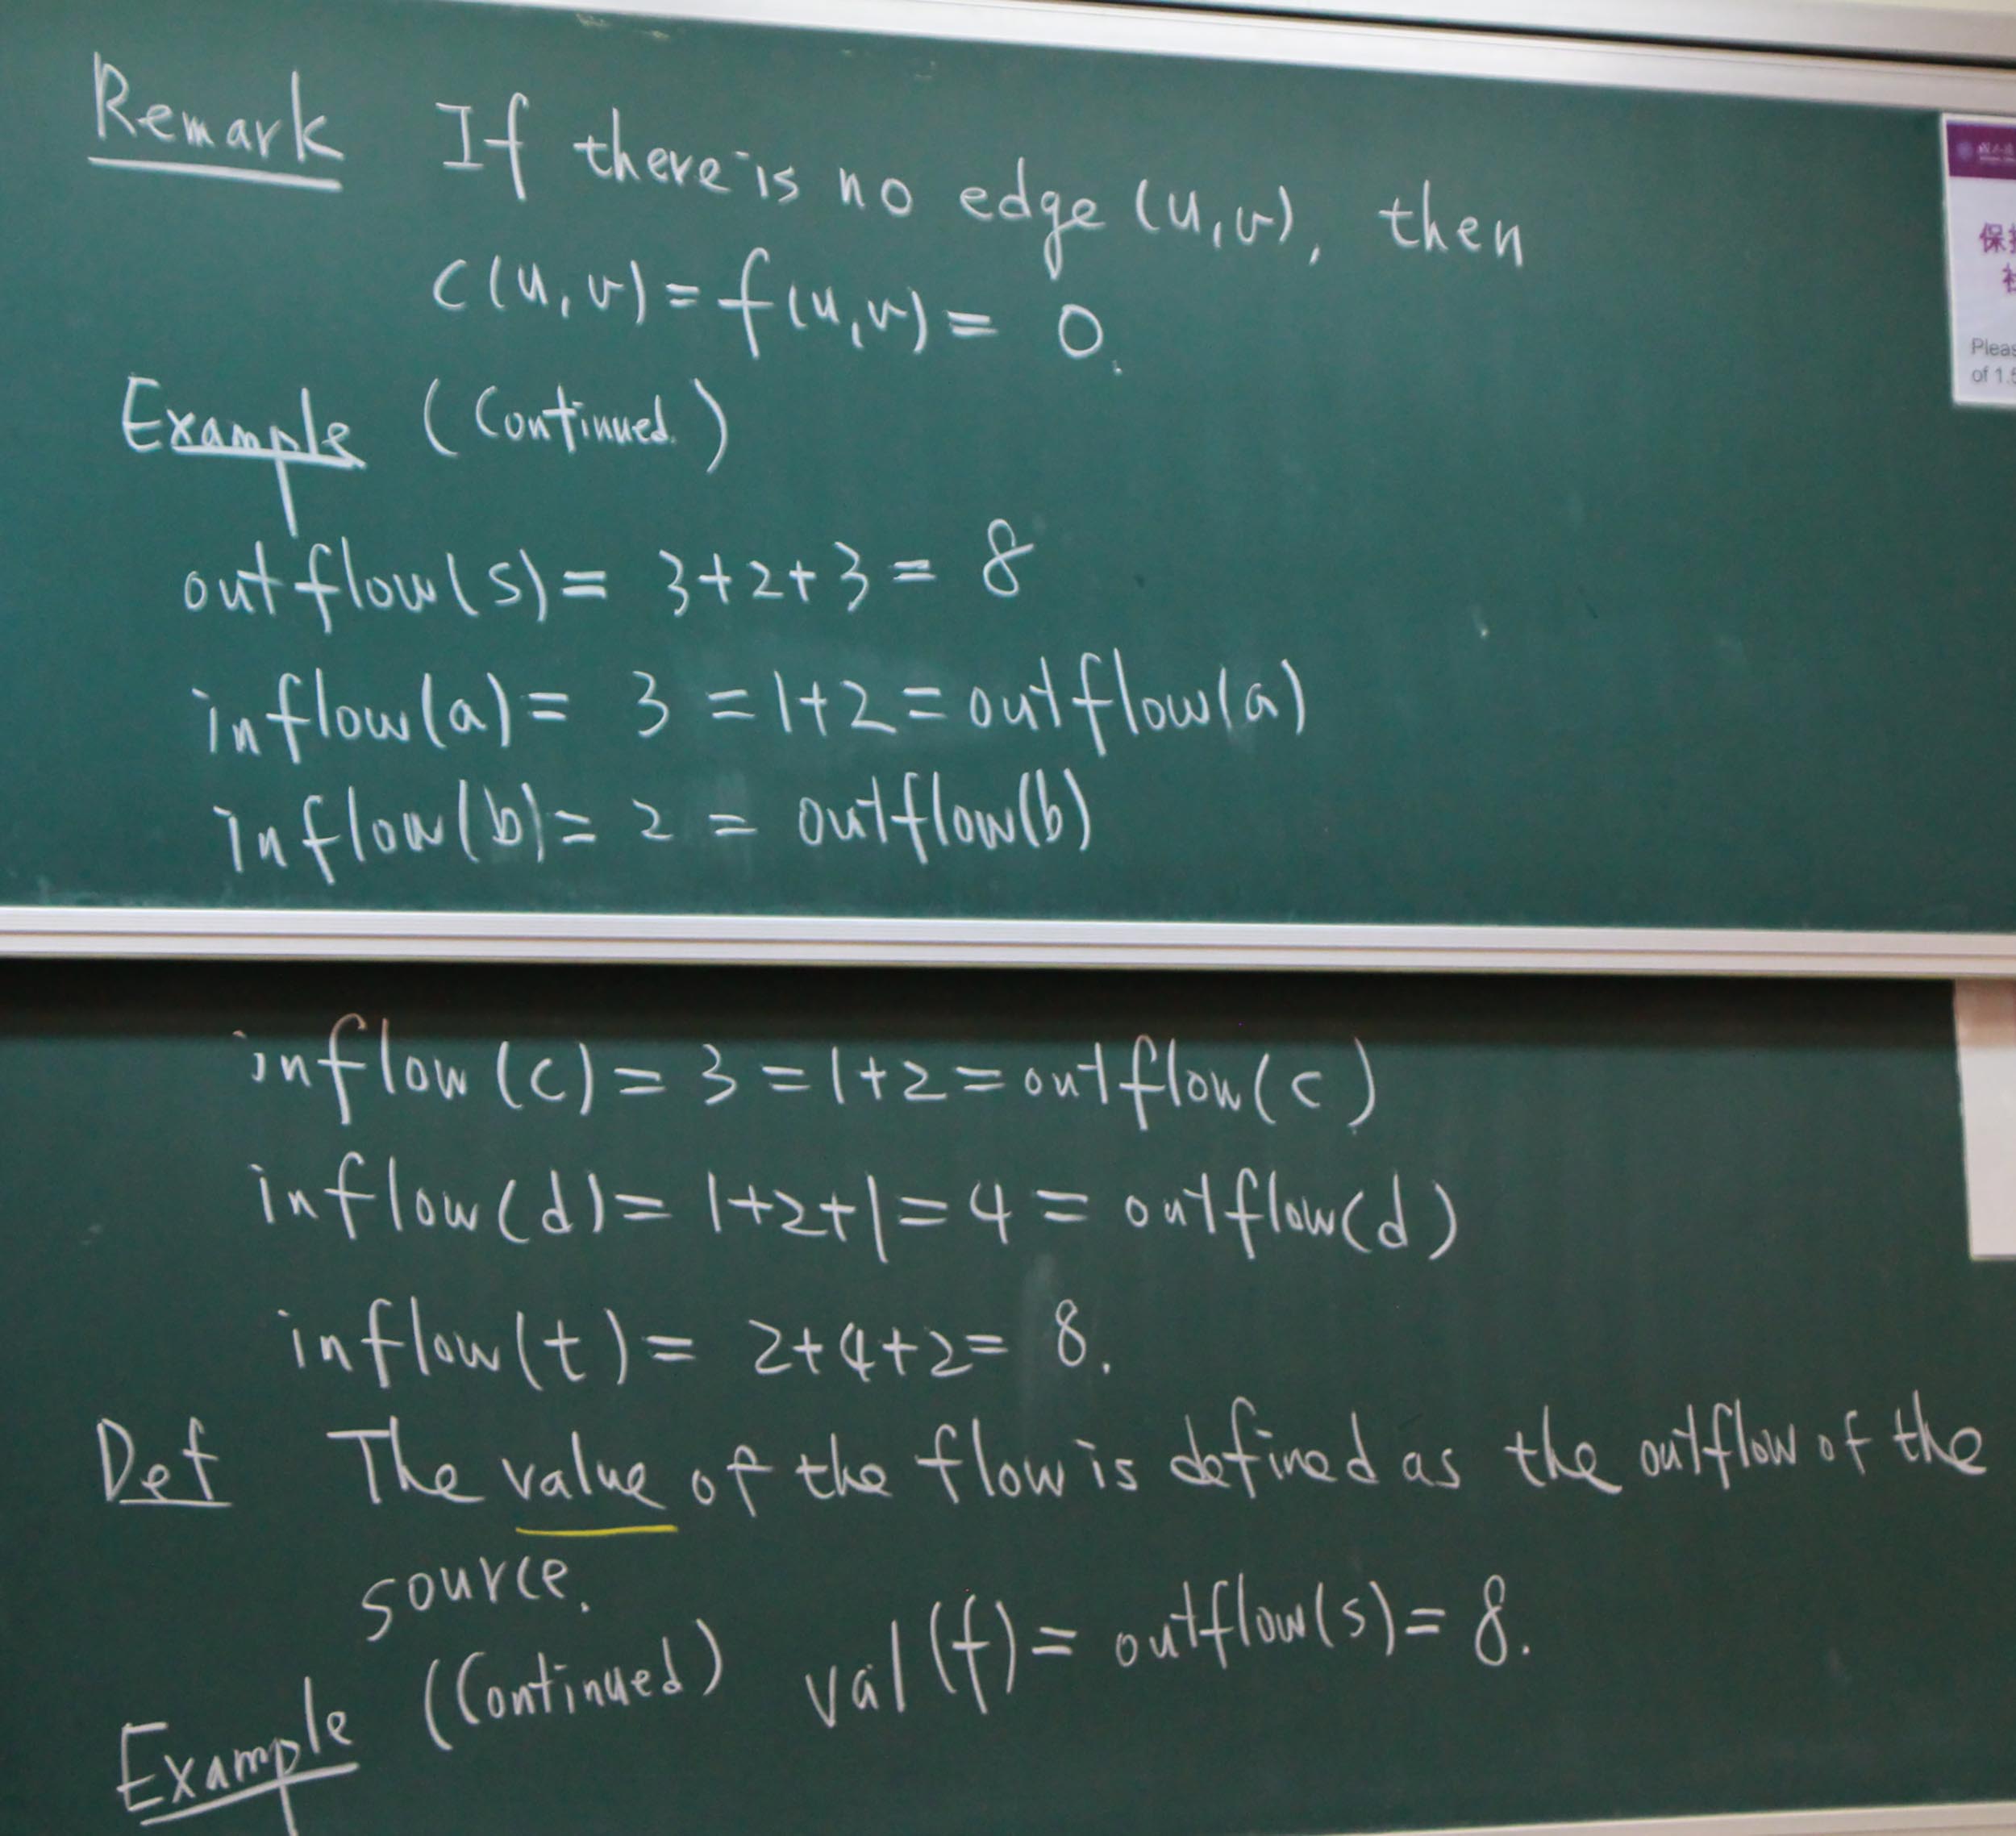 Remark If there is no edge (u,v), then
c(u,v) = f(u,v) = 0.
Example (Continued.)
outflow(s) = 3+2+3 = 8
inflow(a) = 3 = 1+2 = outflow(a)
inflow(b) = 2 = outflow(b)
inflow(c) = 3 = 1+2 = outflow(c)
inflow(d) = 1+2+1 = 4 = outflow(d)
inflow(t) = 2+4+2 = 8.
Def The value of the flow is defined as the outflow of the
source.
Example (Continued) val(f) = outflow(s) = 8.
保
of 1.5